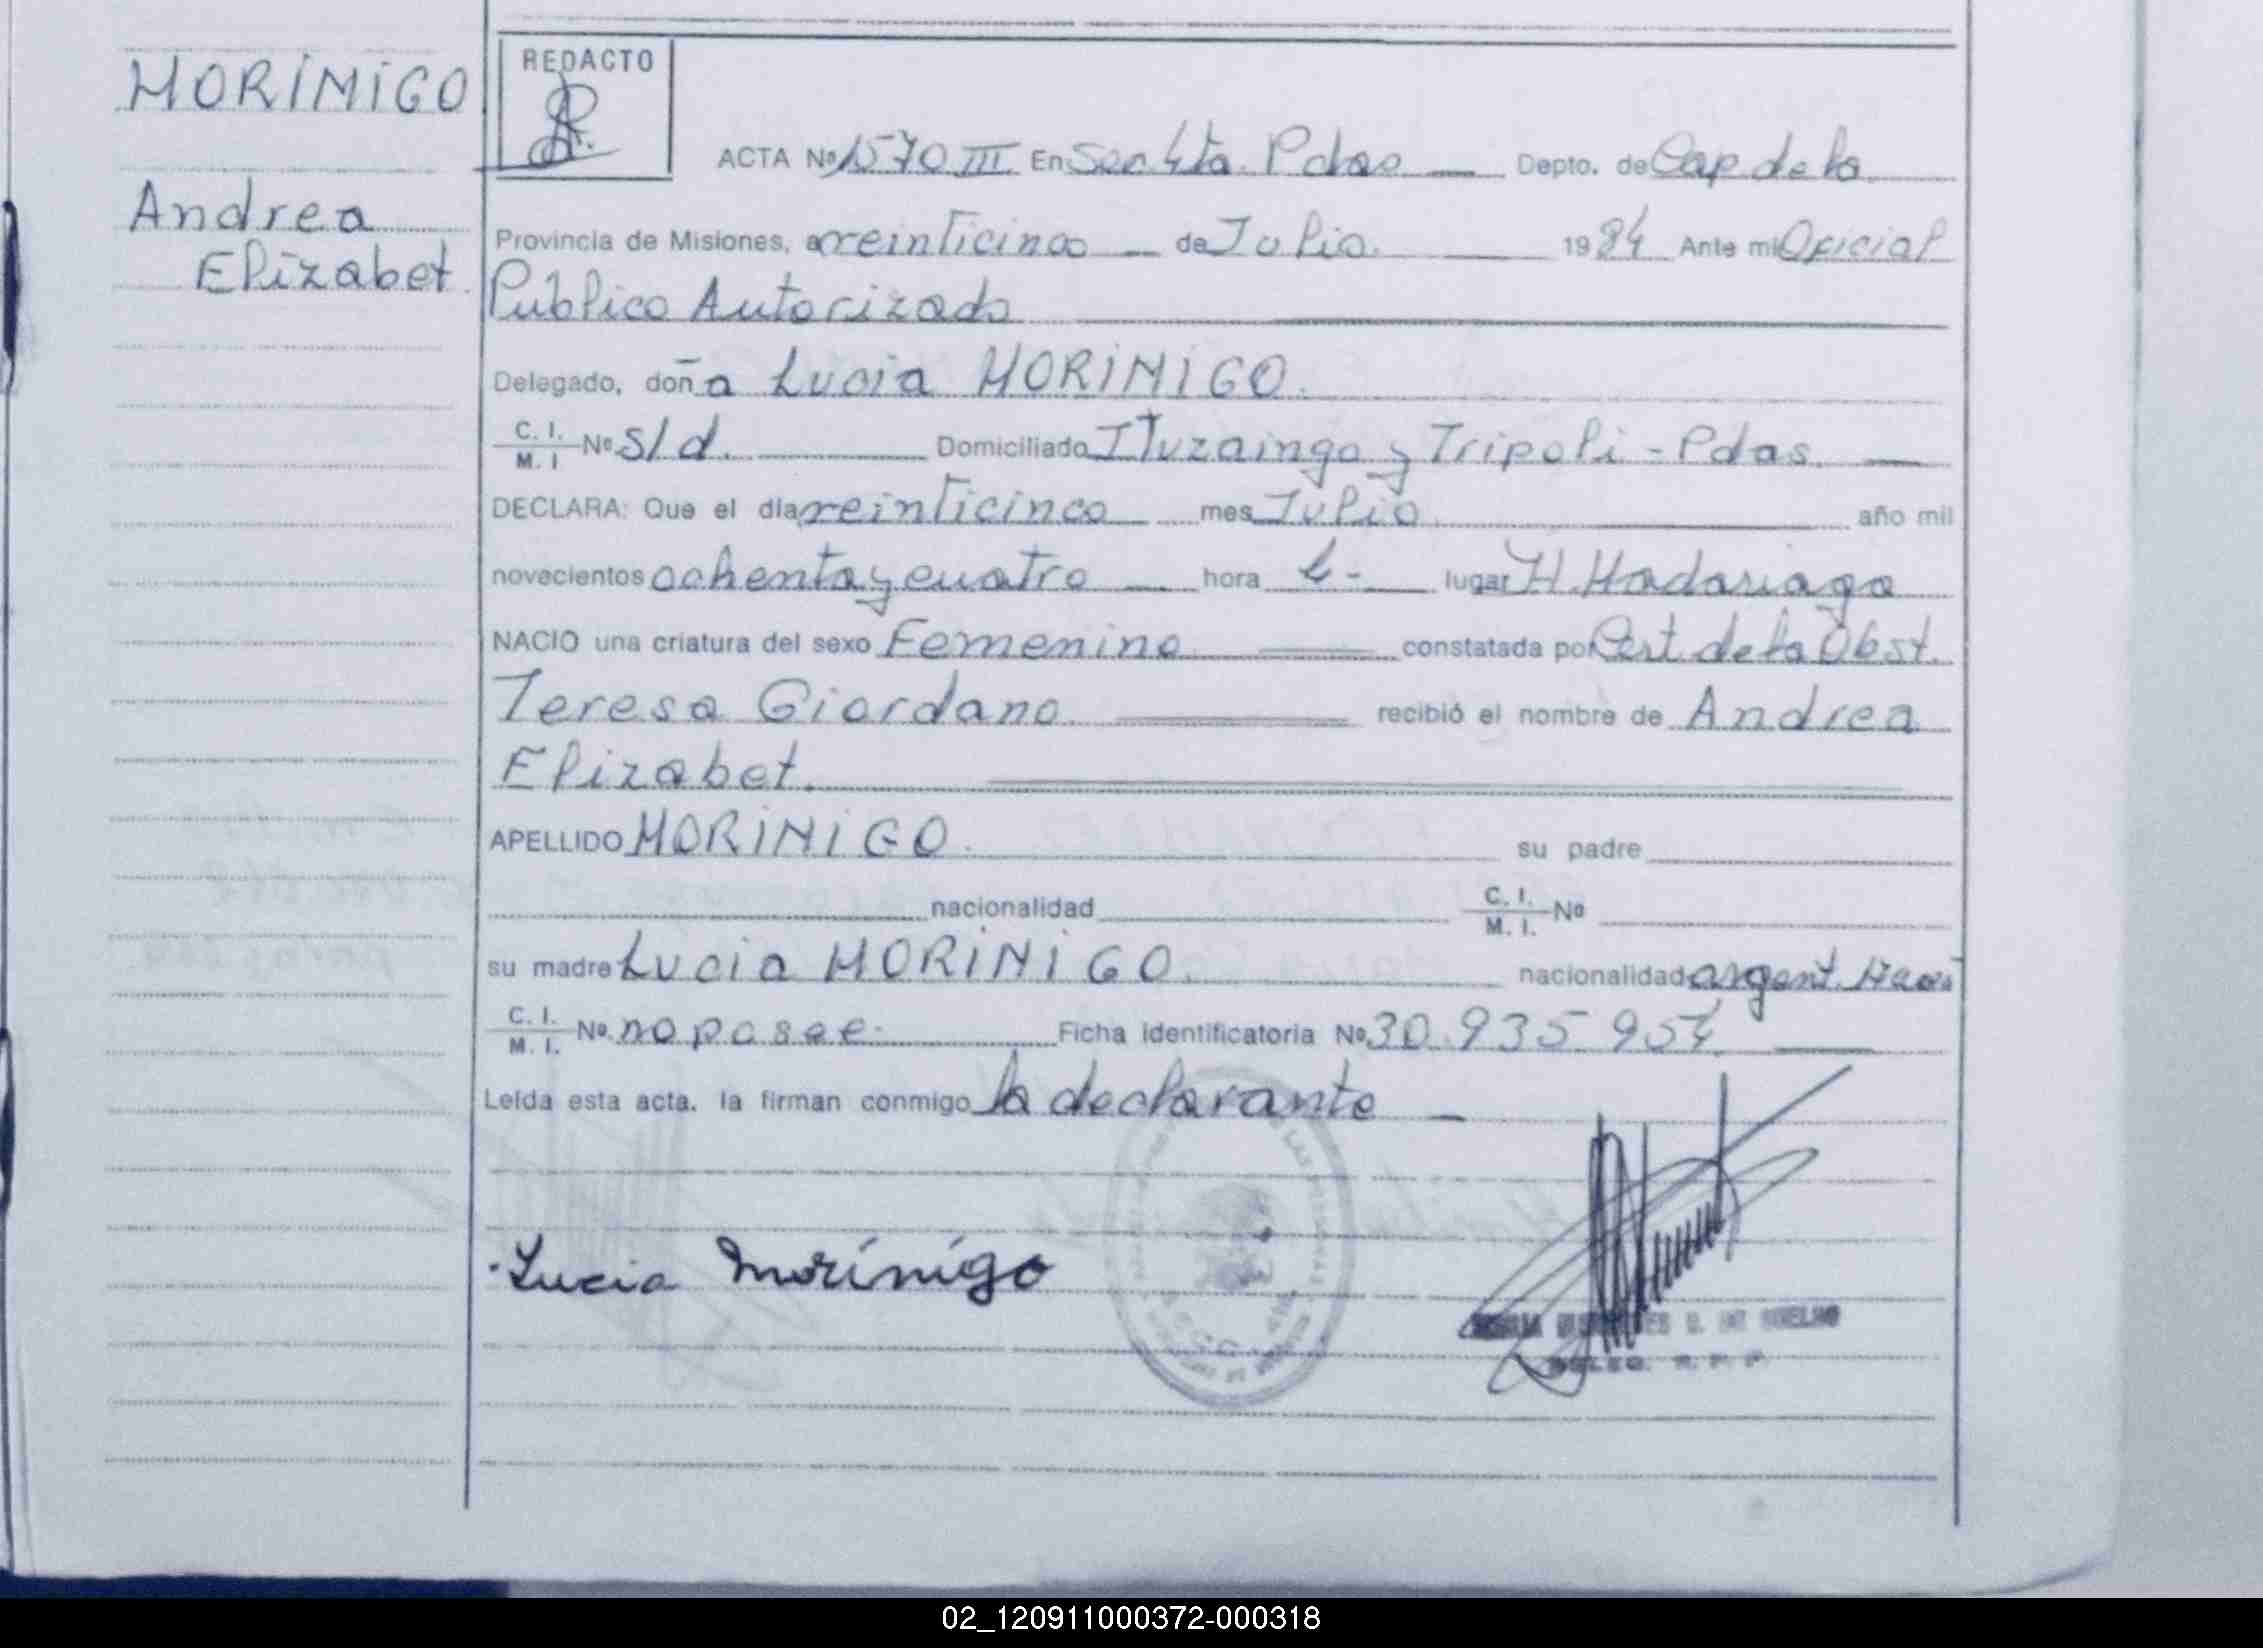 MORÍNIGO
Andrea
Elizabet
REDACTO
ACTA Nº 1570 III En Sec 4ta. Pdas Depto. de Cap de la
Provincia de Misiones, a veinticinco de Julio. 1984 Ante mi Oficial
Publico Autorizado
Delegado, doña Lucia MORÍNIGO.
C. I. / M. I Nº s/d. Domiciliado Ituzaingo y Tripoli - Pdas.
DECLARA: Que el día veinticinco mes Julio año mil
novecientos ochenta y cuatro hora lugar H. Madariaga
NACIO una criatura del sexo Femenino constatada por Cert. de la Obst.
Teresa Giordano. recibió el nombre de Andrea
Elizabet.
APELLIDO MORÍNIGO. su padre
nacionalidad C. I. / M. I. Nº
su madre Lucia MORÍNIGO. nacionalidad argent.
C. I. / M. I. Nº no posee. Ficha identificatoria Nº 30.935.954
Leída esta acta, la firman conmigo la declarante
Lucia Morínigo
DELEG. R. P. P.
02_120911000372-000318